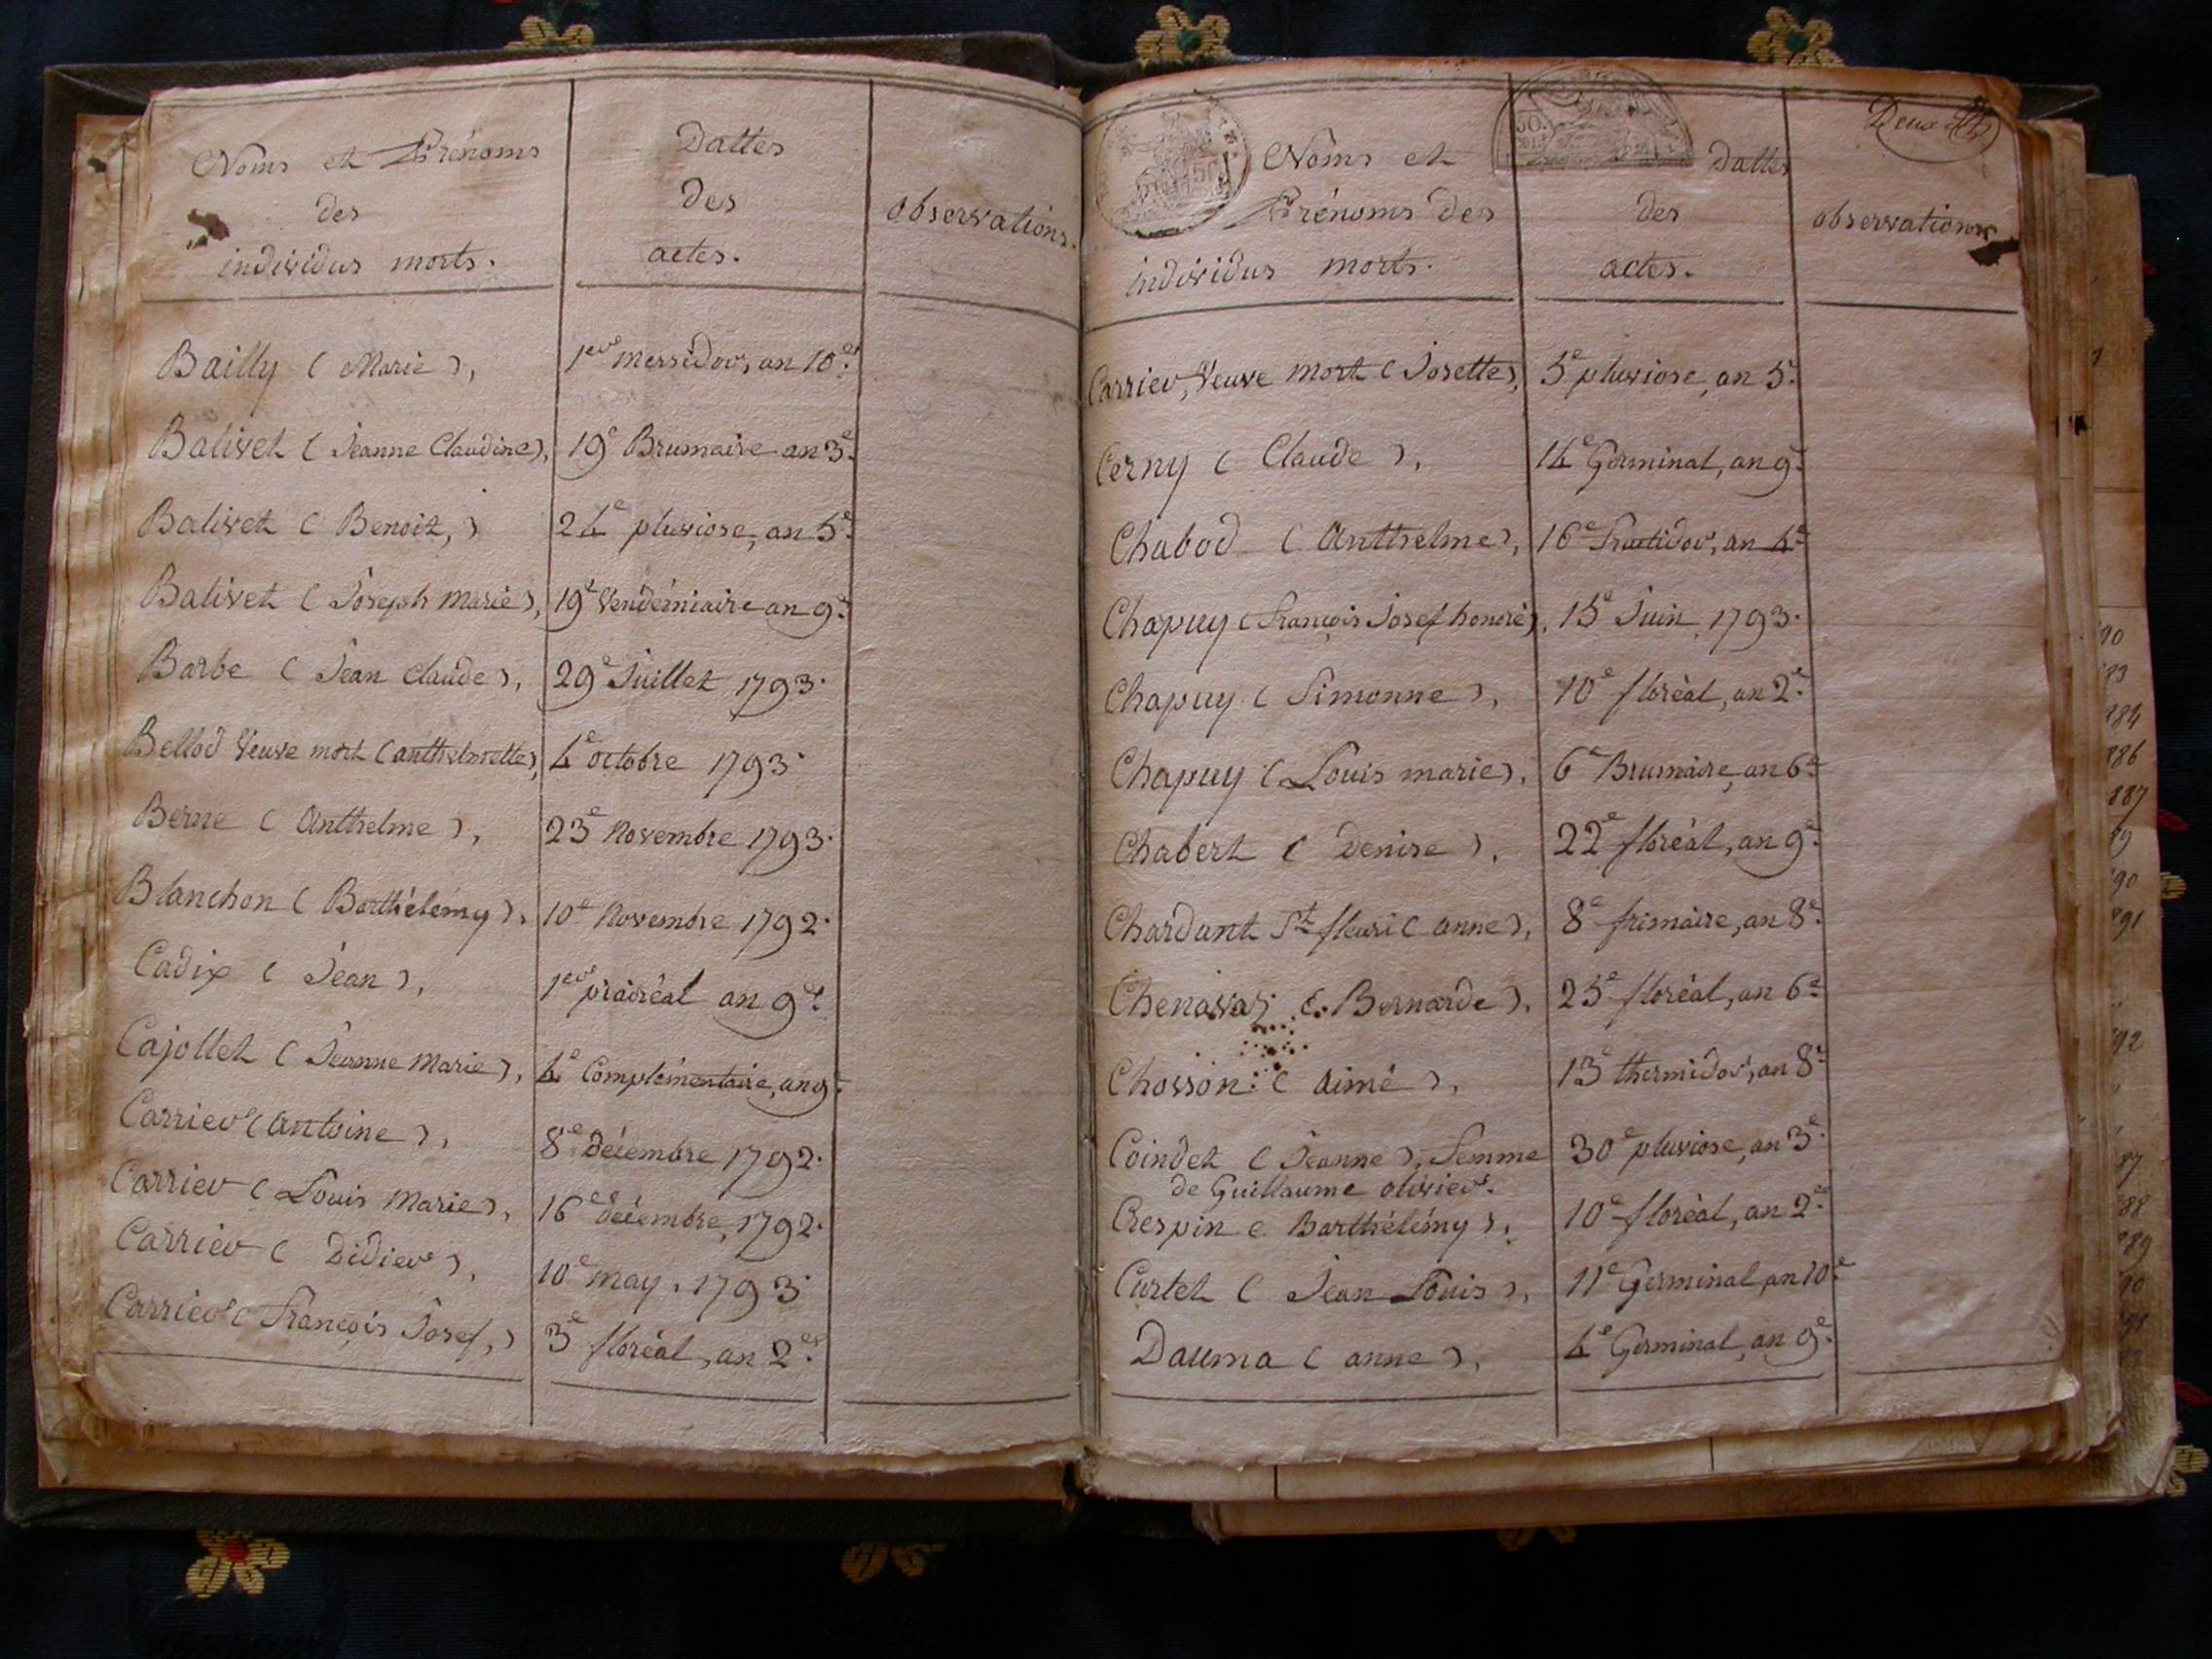 Noms et Prénoms
des
individus morts.
Dattes
des
actes.
observations.
Bailly (Marie), 1er messidor, an 10e.
Balivet (Jeanne Claudine), 19e Brumaire an 3e.
Balivet (Benoit,) 24e pluviose, an 5e.
Balivet (Joseph Marie), 19e Vendémiaire an 9e.
Barbe (Jean Claude), 29e Juillet 1793.
Bellod Veuve mort (anthelmette), 4e octobre 1793.
Berne (Anthelme), 23e Novembre 1793.
Blanchon (Barthélémy), 10e Novembre 1792.
Cadix (Jean), 1er prairéal an 9e.
Cajollet (Jeanne Marie), 4e Complémentaire, an 9e.
Carrier (Antoine), 8e décembre 1792.
Carrier (Louis Marie), 16e décembre, 1792.
Carrier (Didier), 10e may, 1793.
Carrier (François Josef,) 3e floréal, an 2e.
Deux
Noms et
Prénoms des
individus morts.
Dattes
des
actes.
observations
Carrier, Veuve mort (Josette), 5e pluviose, an 5e.
Cerny (Claude), 14e Germinal, an 9e.
Chabod (Anthelme), 16e Fructidor, an 4e
Chapuy (François Josef honoré), 15e Juin, 1793.
Chapuy (Simonne), 10e floréal, an 2e.
Chapuy (Louis marie), 6e Brumaire, an 6e.
Chabert (Denise), 22e floréal, an 9e.
Chardant St fleuri (anne), 8e frimaire, an 8e.
Chenavaz (Bernarde), 25e floréal, an 6e.
Chosson (Aimé), 13e thermidor, an 8e.
Coindet (Jeanne), Femme 30e pluviose, an 3e.
de Guillaume olivier.
Crespin (Barthélémy), 10e floréal, an 2e.
Curtet (Jean Louis), 11e Germinal, an 10e.
Dauma (anne), 4e Germinal, an 9e.